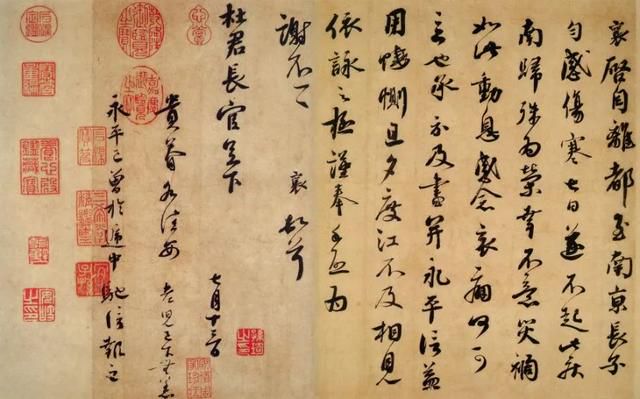 襄啓自離都至南京長子
勻感傷寒七日遂不起此疾
南歸殊為榮幸不意災禍
如此動息感念哀痛何可
言也承示及書并永平信益
用悽惻旦夕度江不及相見
依詠之極謹奉手啓為
謝不一一 襄 頓首
杜君長官足下
七月十三日
貴眷各佳安 老兒已下無恙
永平已曾於遞中馳信報之